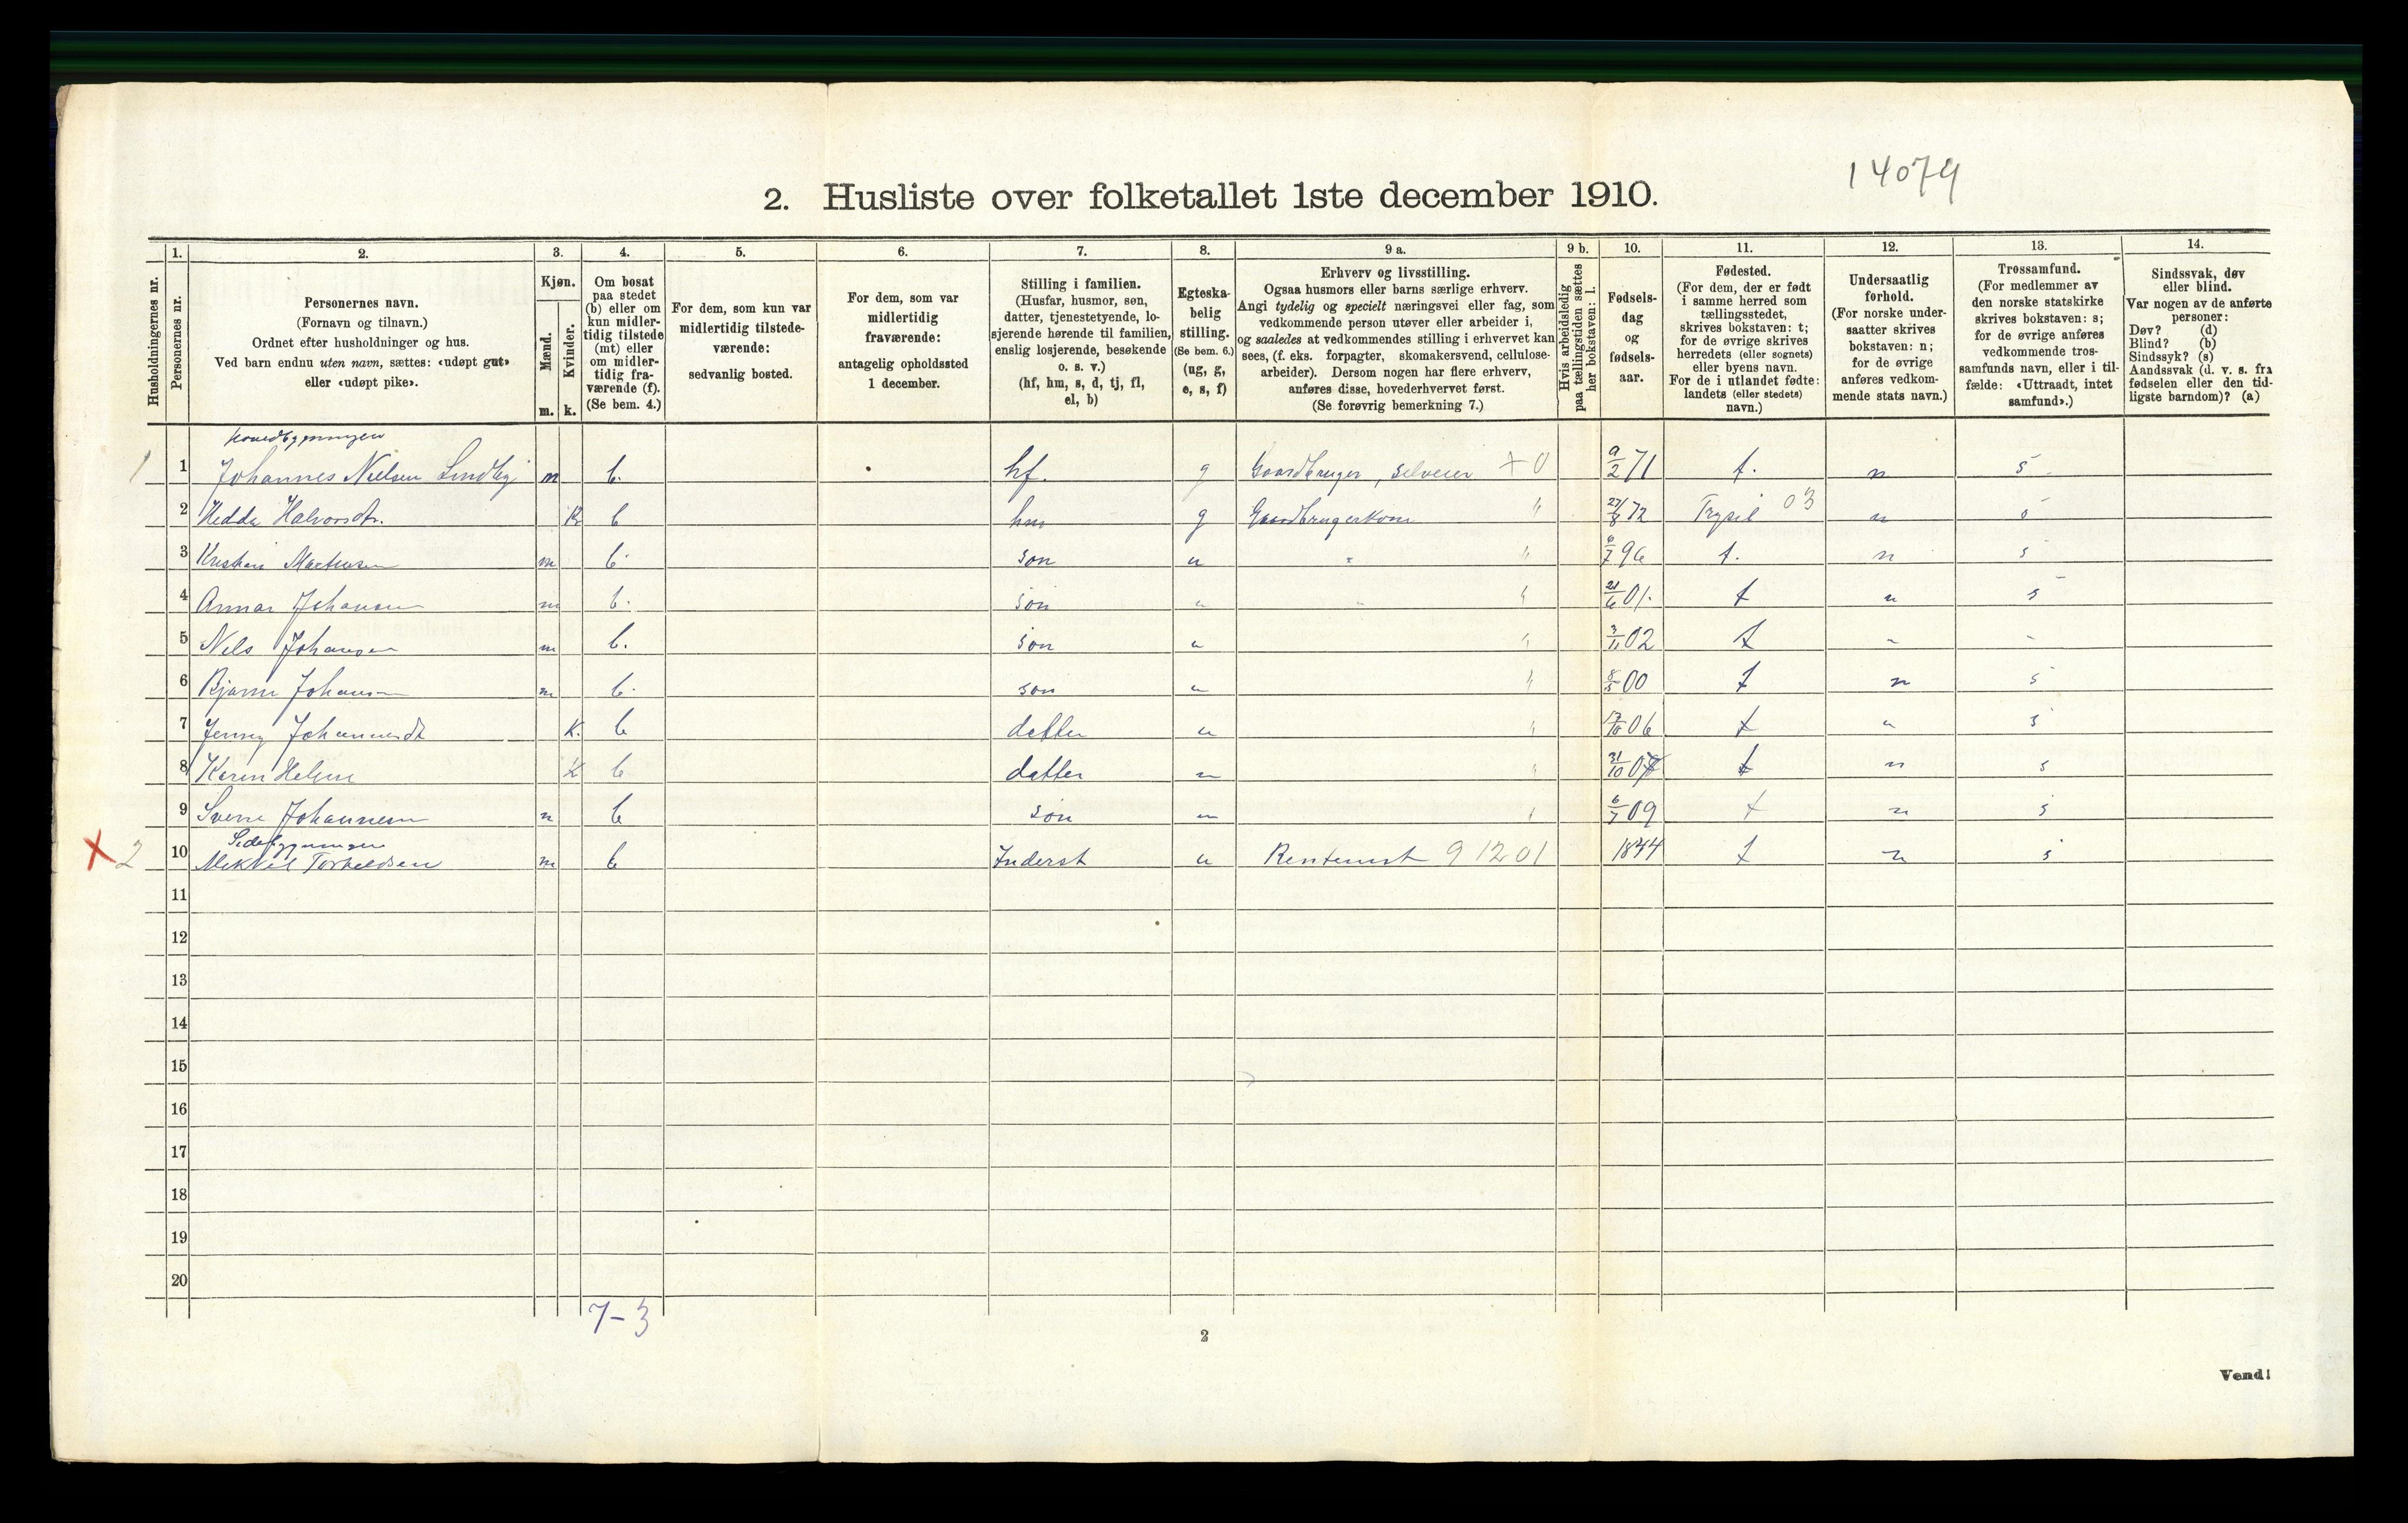 14079
2. Husliste over folketallet 1ste december 1910.
Husholdningernes nr.
1.
Personernes nr.
2.
Personernes navn.
(Fornavn og tilnavn.)
Ordnet efter husholdninger og hus.
Ved barn endnu uten navn, sættes: «udøpt gut»
eller «udøpt pike».
3.
Kjøn.
Mænd.
Kvinder.
m. k.
4.
Om bosat
paa stedet
(b) eller om
kun midler-
tidig tilstede
(mt) eller
om midler-
tidig fra-
værende (f).
(Se bem. 4.)
5.
For dem, som kun var
midlertidig tilstede-
værende:
sedvanlig bosted.
6.
For dem, som var
midlertidig
fraværende:
antagelig opholdssted
1 december.
7.
Stilling i familien.
(Husfar, husmor, søn,
datter, tjenestetyende, lo-
sjerende hørende til familien,
enslig losjerende, besøkende
o. s. v.)
(hf, hm, s, d, tj, fl,
el, b)
8.
Egteska-
belig
stilling.
(Se bem. 6.)
(ug, g,
e, s, f)
9 a.
Erhverv og livsstilling.
Ogsaa husmors eller barns særlige erhverv.
Angi tydelig og specielt næringsvei eller fag, som
vedkommende person utøver eller arbeider i,
og saaledes at vedkommendes stilling i erhvervet kan
sees, (f. eks. forpagter, skomakersvend, cellulose-
arbeider). Dersom nogen har flere erhverv,
anføres disse, hovederhvervet først.
(Se forøvrig bemerkning 7.)
9 b.
Hvis arbeidsledig
paa tællingstiden sættes
her bokstaven: l.
10.
Fødsels-
dag
og
fødsels-
aar.
11.
Fødested.
(For dem, der er født
i samme herred som
tællingsstedet,
skrives bokstaven: t;
for de øvrige skrives
herredets (eller sognets)
eller byens navn.
For de i utlandet fødte:
landets (eller stedets)
navn.)
12.
Undersaatlig
forhold.
(For norske under-
saatter skrives
bokstaven: n;
for de øvrige
anføres vedkom-
mende stats navn.)
13.
Trossamfund.
(For medlemmer av
den norske statskirke
skrives bokstaven: s;
for de øvrige anføres
vedkommende tros-
samfunds navn, eller i til-
fælde: «Uttraadt, intet
samfund».)
14.
Sindssvak, døv
eller blind.
Var nogen av de anførte
personer:
Døv? (d)
Blind? (b)
Sindssyk? (s)
Aandssvak (d. v. s. fra
fødselen eller den tid-
ligste barndom)? (a)
Hovedbygningen
1 1 Johannes Nielsen m b. hf. g Gaardbruger, selveier 9/2 71 t. n s
2 Hedda Halvorsdtr. k b hm g Gaardbrugerkone " 27/8 72 Trysil 03 n s
3 m b. søn u " " 6/7 96 t. n s
4 Johansen m b. søn u " " 21/6 01. t n s
5 Nels Johansen m b. søn u " 3/11 02 t " "
6 Bjarne Johansen m b. søn u " 00 t n s
7 Jenny k. b datter u " 06 t n s
8 Karen Helene k b datter u " 31/10 07 t n s
9 Sverre Johannesen m b søn u " 6/7 09 t n s
Sidebygningen
X 2 10 Torkeldsen m b Inderst u Rentenist 9 12 01 1844 t n s
11
12
13
14
15
16
17
18
19
20
7-3
2
Vend!